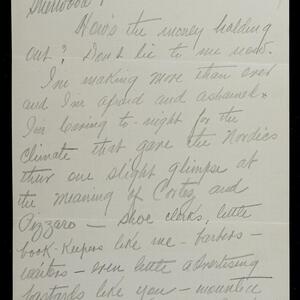 Sherwood,
How's the money holding
out? Don't lie to me now.
I'm making more than ever
and I'm afraid and ashamed &
I'm leaving to-night for the
climate that gave the Nordics
their one slight glimpse at
the meaning of Cortez and
Pizzaro — shoe clerks, little
book-keepers like me — barbers —
waiters — even little advertising
bastards like you —